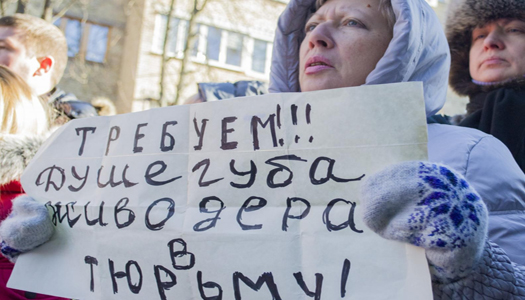 ТРЕБУЕМ!!!
ДУШЕГУБА
ЖИВОДЕРА
В
ТЮРЬМУ!